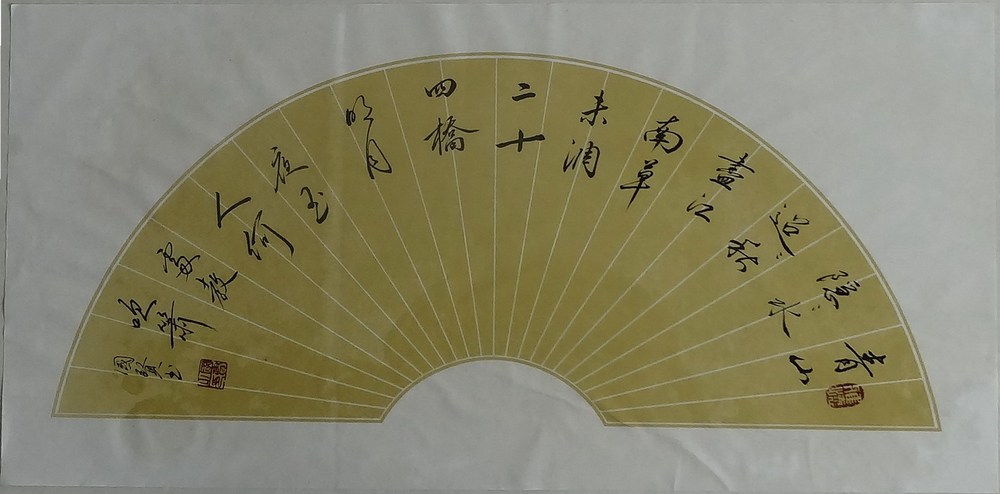 青山
隱〻水
迢〻秋
盡江
南草
未凋
二十
四橋
明月
夜玉
人何
處教
吹簫
國賢书